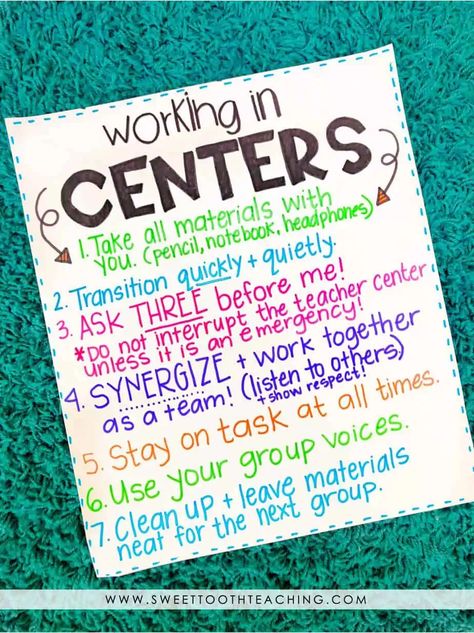 working in
CENTERS
1. Take all materials with
you. (pencil, notebook, headphones)
2. Transition quickly + quietly.
3. ASK THREE before me!
*Do not interrupt the teacher center
unless it is an emergency!
4. SYNERGIZE + work together
as a team! (listen to others)
+ show respect!
5. Stay on task at all times.
6. Use your group voices.
7. Clean up + leave materials
neat for the next group.
WWW.SWEETTOOTHTEACHING.COM